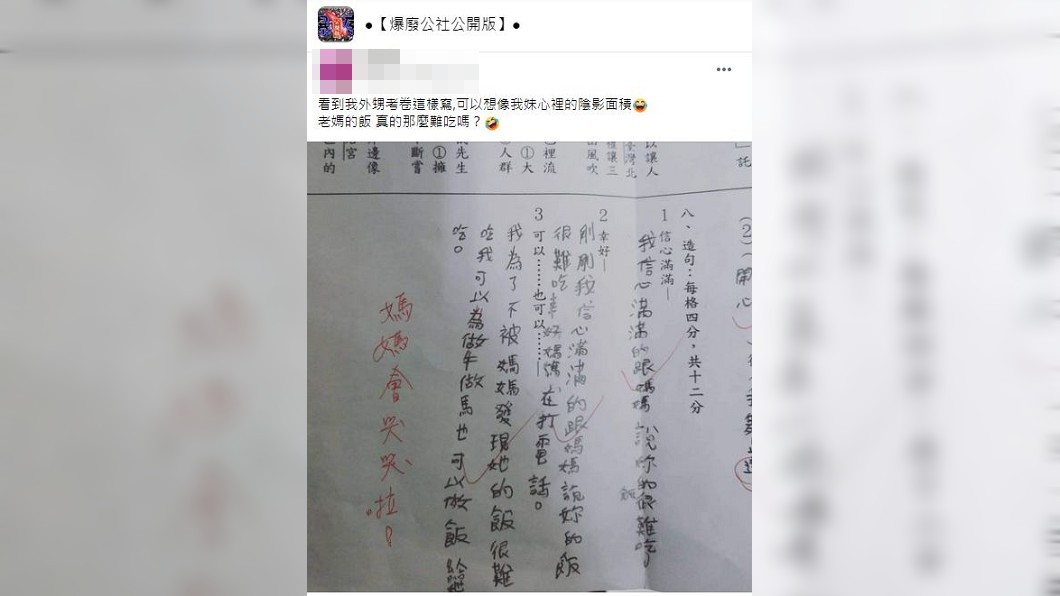 ●【爆廢公社公開版】●
看到我外甥考卷這樣寫,可以想像我妹心裡的陰影面積😂
老媽的飯 真的那麼難吃嗎？🤣
託
以讓人
臺灣北
種讓三
出風吹
裡流
①大
人群
先生
①擁
斷當
邊像
宮
內的
2 (開心
八、造句：每格四分，共十二分
1 信心滿滿—
我信心滿滿的跟媽媽說妳的飯很難吃
2 幸好—
剛剛我信心滿滿的跟媽媽說妳的飯
很難吃幸好媽媽在打電話。
3 可以……也可以……—
我為了不被媽媽發現她的飯很難
吃我可以為做牛做馬也可以做飯給
吃。
媽媽會哭哭啦！